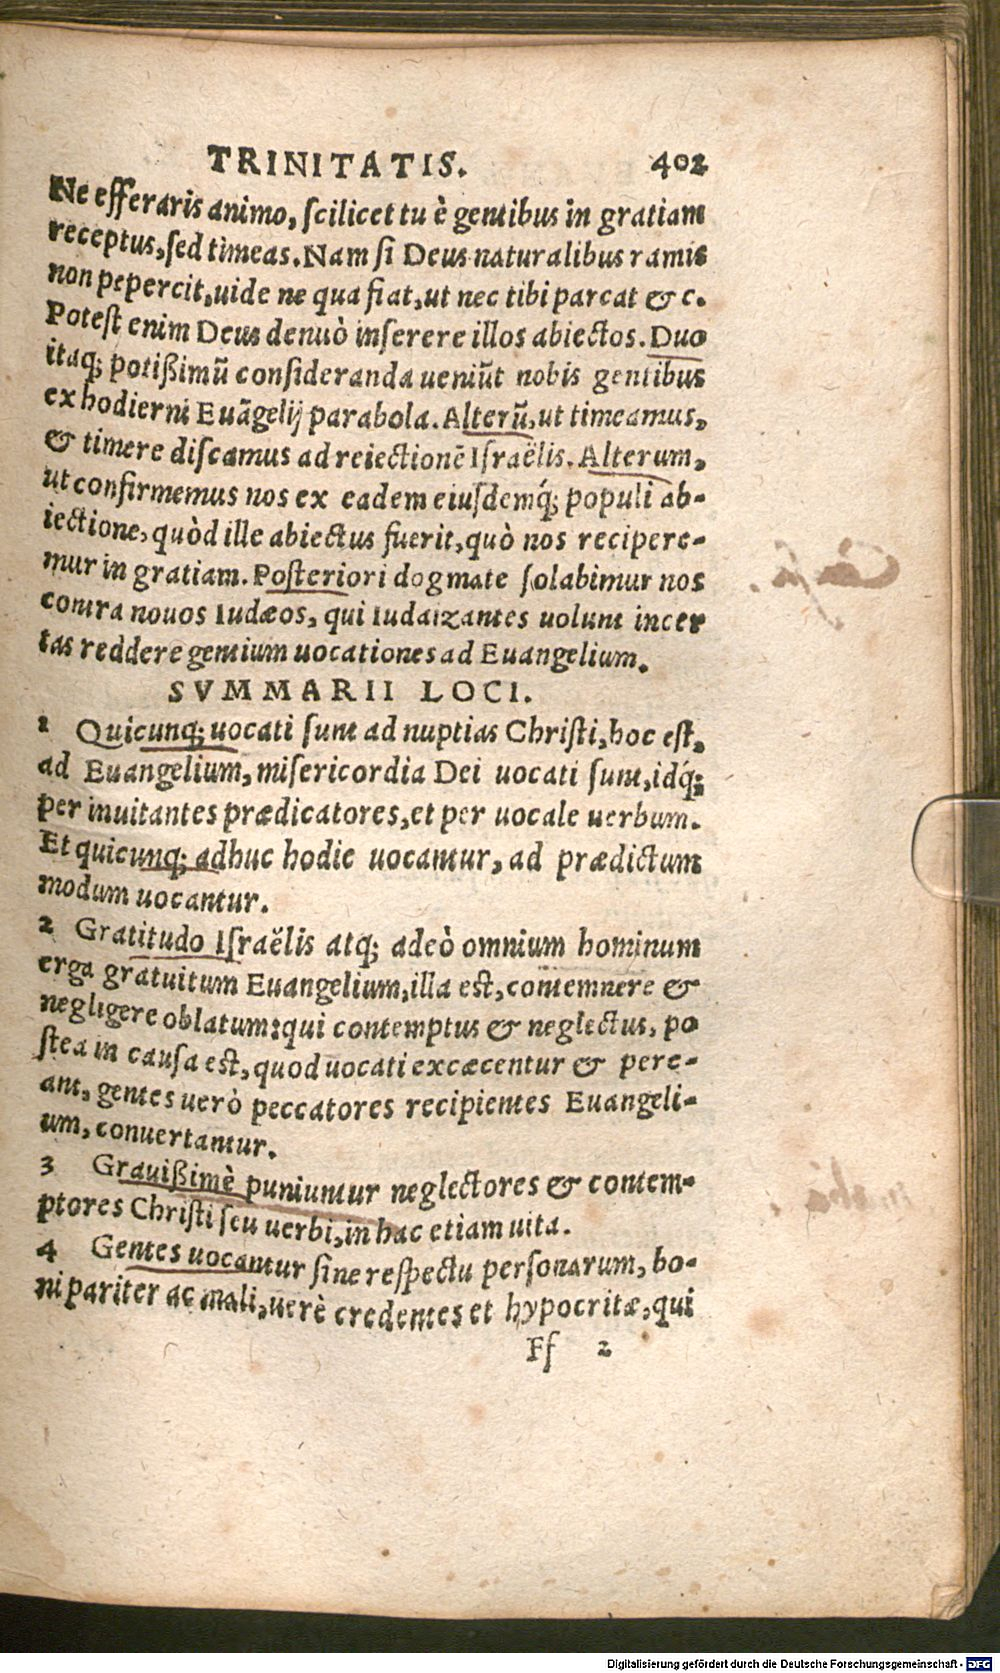 TRINITATIS. 402
Ne efferaris animo, ſcilicet tu è gentibus in gratiam
receptus, ſed timeas. Nam ſi Deus naturalibus ramis
non pepercit, uide ne qua fiat, ut nec tibi parcat & c.
Poteſt enim Deus denuò inſerere illos abiectos. Duo
itaq; potißimū conſideranda ueniūt nobis gentibus
ex hodierni Euāgelij parabola. Alterū, ut timeamus,
& timere diſcamus ad reiectionē Iſraëlis. Alterum,
ut confirmemus nos ex eadem eiuſdemq́; populi ab-
iectione, quòd ille abiectus fuerit, quò nos recipere-
mur in gratiam. Poſteriori dogmate ſolabimur nos
contra nouos Iudæos, qui Iudaizantes uolunt incer
tas reddere gentium uocationes ad Euangelium.
SVMMARII LOCI.
1 Quicunq; uocati ſunt ad nuptias Chriſti, hoc eſt,
ad Euangelium, miſericordia Dei uocati ſunt, idq́;
per inuitantes prædicatores, et per uocale uerbum.
Et quicunq; adhuc hodie uocantur, ad prædictum
modum uocantur.
2 Gratitudo Iſraëlis atq; adeò omnium hominum
erga gratuitum Euangelium, illa eſt, contemnere &
negligere oblatum: qui contemptus & neglectus, po
ſtea in cauſa eſt, quod uocati excæcentur & pere-
ant, gentes uerò peccatores recipientes Euangeli-
um, conuertantur.
3 Grauißimè puniuntur neglectores & contem-
ptores Chriſti ſeu uerbi, in hac etiam uita.
4 Gentes uocantur ſine reſpectu perſonarum, bo-
ni pariter ac mali, uerè credentes et hypocritæ, qui
Ff 2
Digitalisierung gefördert durch die Deutsche Forschungsgemeinschaft - DFG